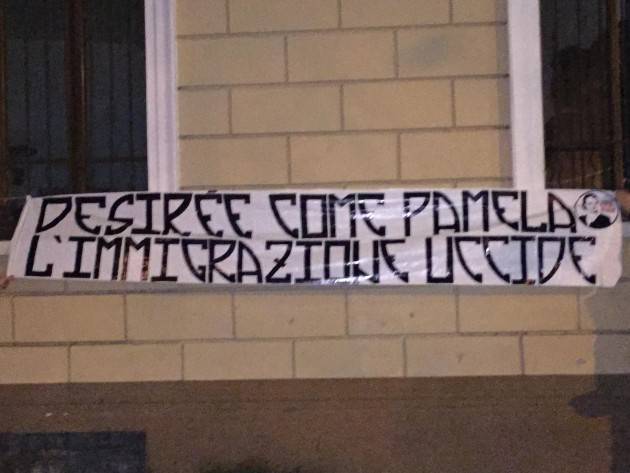 DESIRÉE COME PAMELA
L'IMMIGRAZIONE UCCIDE